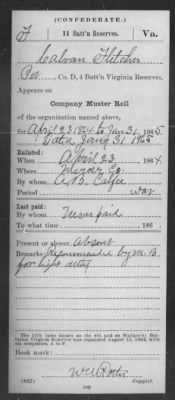 (CONFEDERATE.)
F 11 Batt'n Reserves. Va.
Calvan Fletcher
Co. D, 4 Batt'n Virginia Reserves.
Appears on
Company Muster Roll
of the organization named above,
for April 23 1864 to Jan 31, 1865.
31 1865
Enlisted:
When April 23, 1864.
Where Mercer Co.
By whom
Period war
Last paid:
By whom Never paid
To what time , 186 .
Present or absent Absent
Remarks: Recommended by M. B.
for light duty
Book mark:
(642) Copyist.